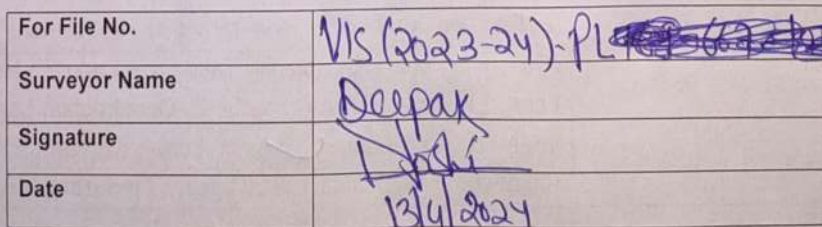 For File No. VIS (2023-24)-PL
Surveyor Name Deepak
Signature Joshi
Date 13/4/2024